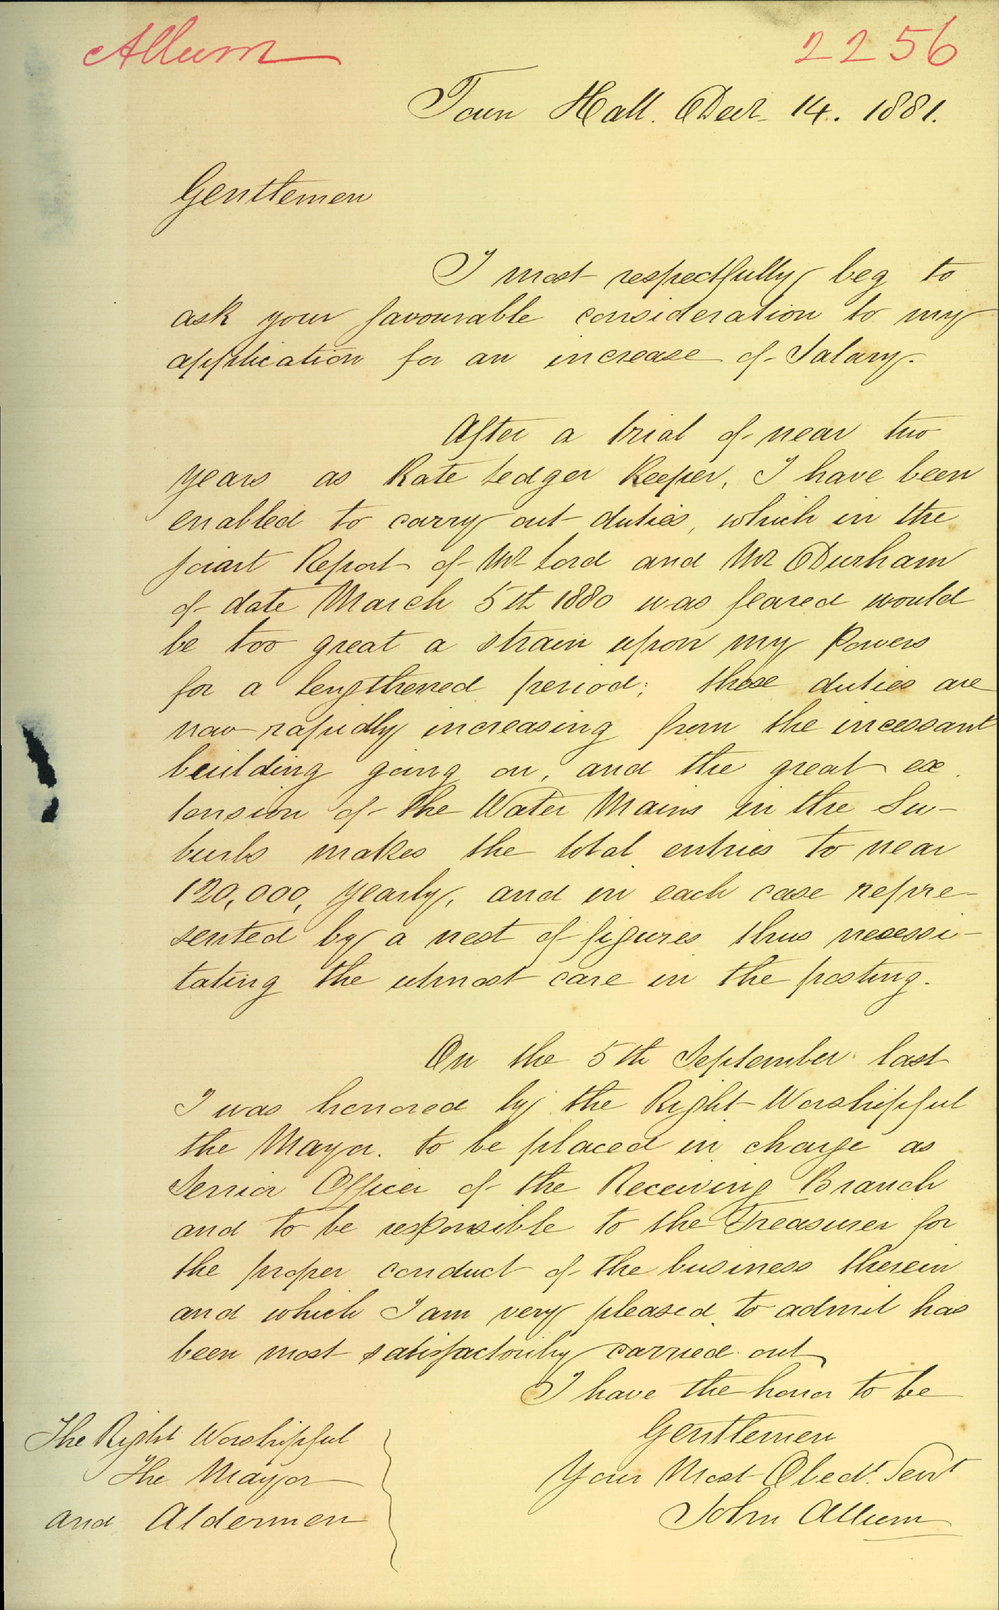 Allum
2256
Town Hall. Decr. 14. 1881.
Gentlemen
I most respectfully beg to
ask your favourable consideration to my
application for an increase of Salary.
After a trial of near two
years as Rate Ledger Keeper, I have been
enabled to carry out duties, which in the
joint Report of Mr Lord and Mr Durham
of date March 5th 1880 was feared would
be too great a strain upon my Powers
for a lengthened period; these duties are
now rapidly increasing from the incessant
building going on, and the great ex
tension of the Water Mains in the Su-
burbs makes the total entries to near
120,000, yearly, and in each case repre-
sented by a nest of figures thus necessi-
tating the utmost care in the posting.
On the 5th September last
I was honored by the Right Worshipful
the Mayor. to be placed in charge as
Senior Officer of the Receiving Branch
and to be responsible to the Treasurer for
the proper conduct of the business therein
and which I am very pleased to admit has
been most satisfactorily carried out
I have the honor to be
Gentlemen
Your Most Obedt. Servt
John Allum
The Right Worshipful
The Mayor
and Aldermen